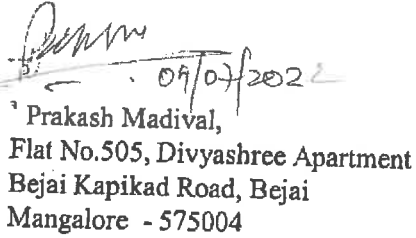 09/07/2022
Prakash Madival,
Flat No.505, Divyashree Apartment
Bejai Kapikad Road, Bejai
Mangalore - 575004